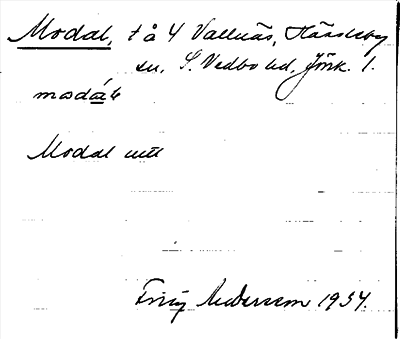 Modal, t å 4 Vallnäs, Hässleby
sn, S. Vedbo hd, Jönk. l.
modá'l
Modal utt
Fritz Andersson 1934.